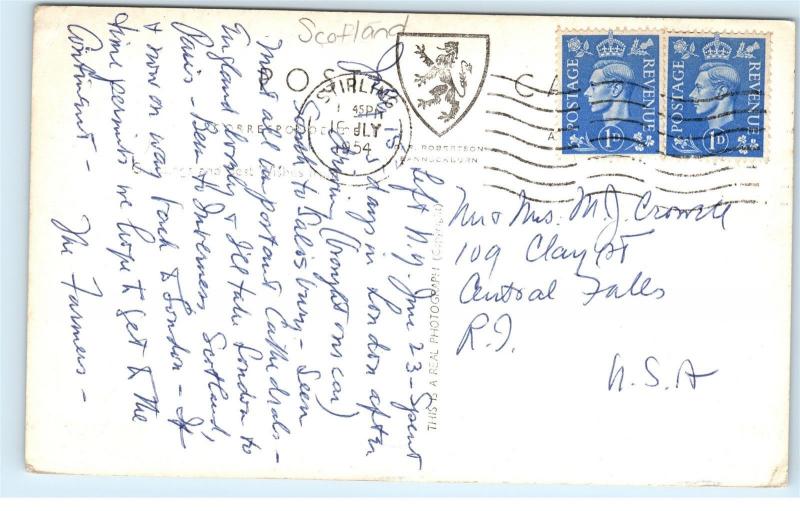 Scotland
POST CARD
STIRLING
1 45PM
15 JLY
1954
POSTAGE REVENUE
1D
POSTAGE REVENUE
1D
CORRESPONDENCE
R.M. ROBERTSON
BANNOCKBURN
THIS IS A REAL PHOTOGRAPH
July 15 -
Left N.Y. June 23 - Spent
days in London after
arriving (bought our car)
South to Salisbury - Seen
most all important Cathedrals -
England lovely & I'll take London to
Paris - Been to Inverness, Scotland,
& now on way back to London - If
time permits we hope to get to the
Continent -
The Farmers -
Mr & Mrs. M.J. Crowell
109 Clay St
Central Falls
R.I.
U.S.A